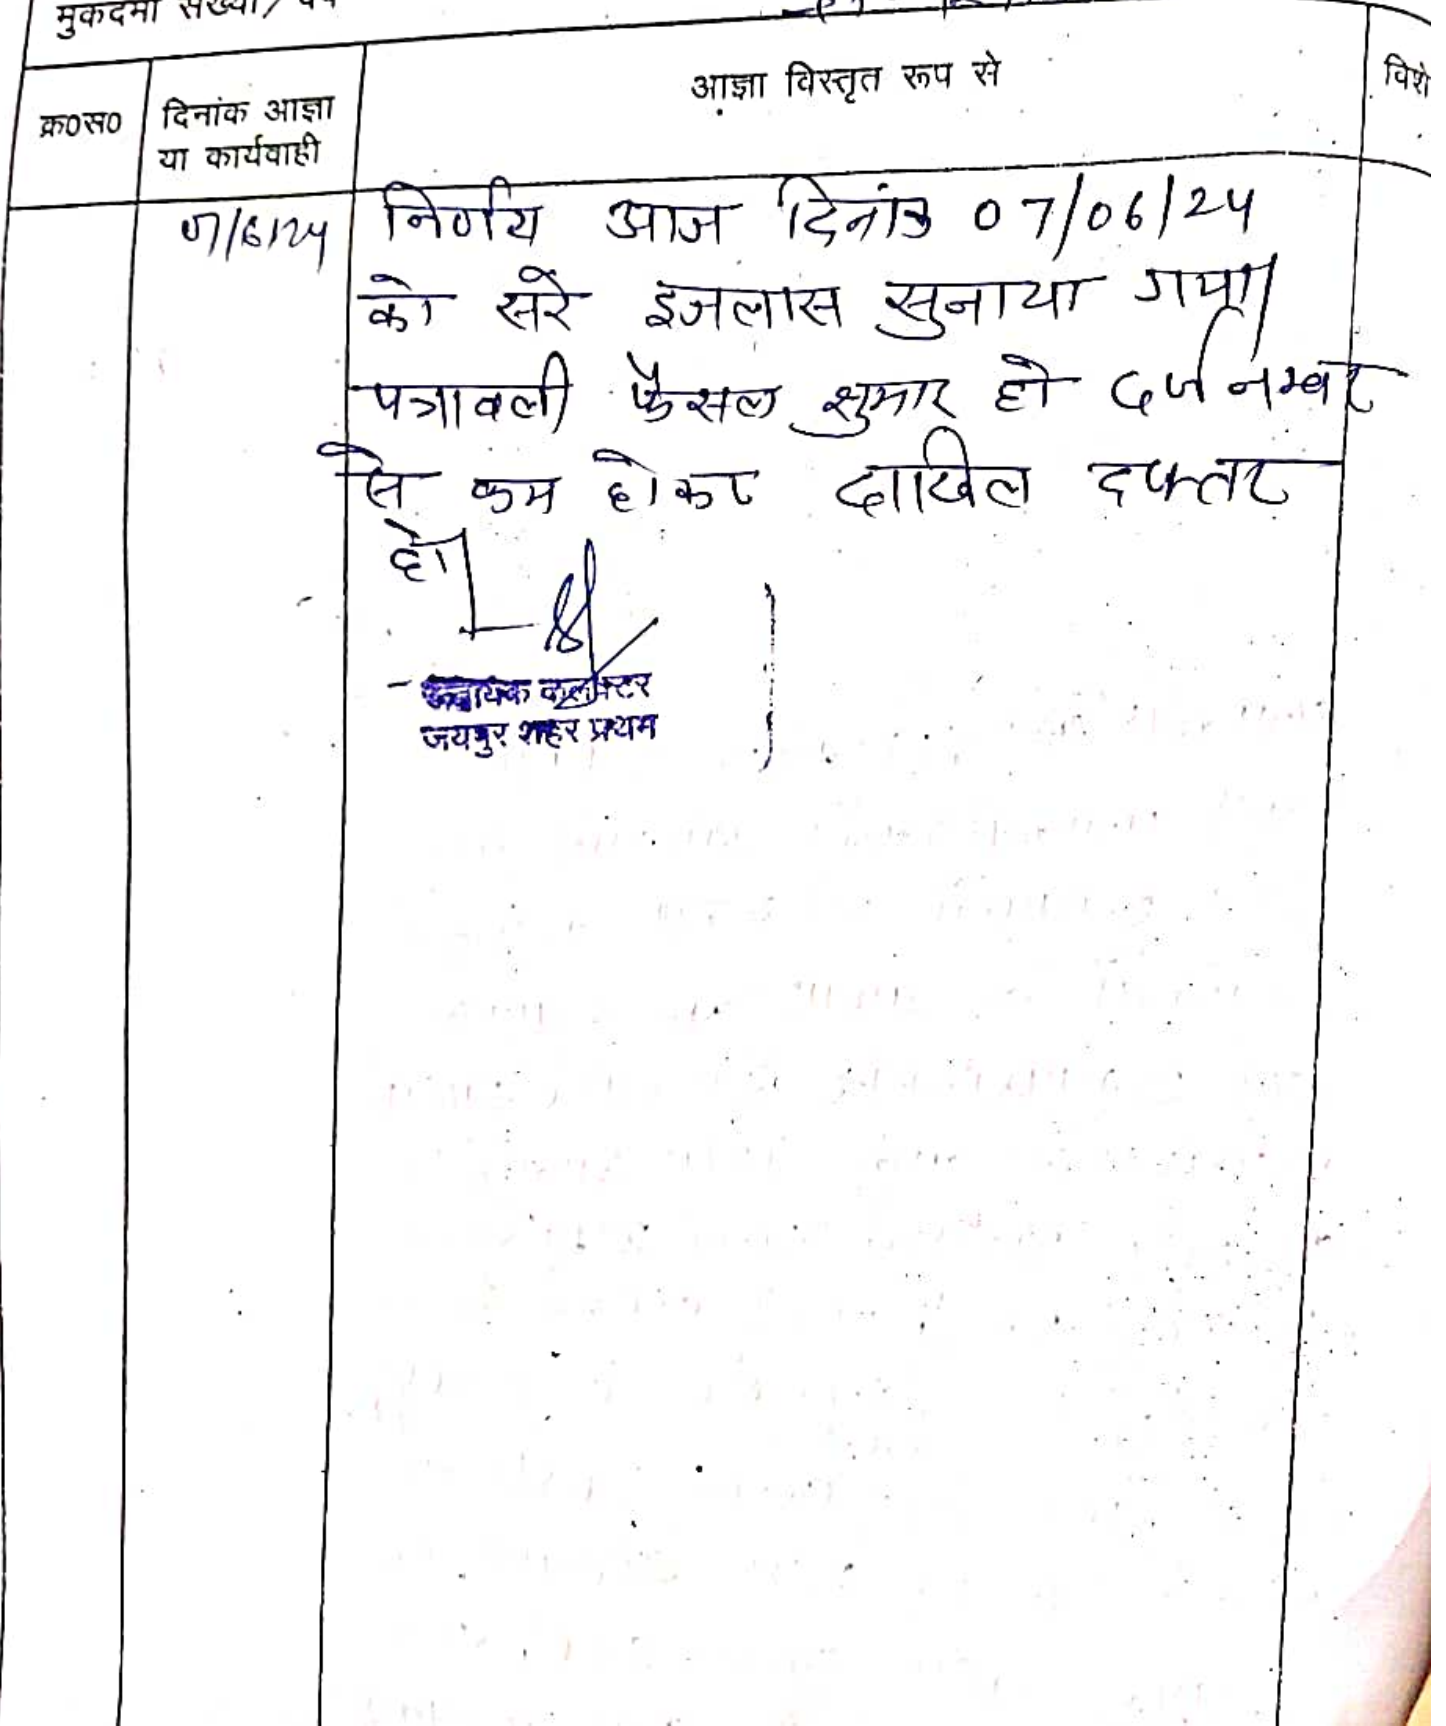 मुकदमा संख्या/
क्र०स०
दिनांक आज्ञा
या कार्यवाही
आज्ञा विस्तृत रूप से
विशे
07/6/24
निर्णय आज दिनांक 07/06/24
को सरे इजलास सुनाया गया।
पत्रावली फैसल शुमार हो दर्ज नम्बर
से कम होकर दाखिल दफ्तर
हो।
सहायक कलक्टर
जयपुर शहर प्रथम